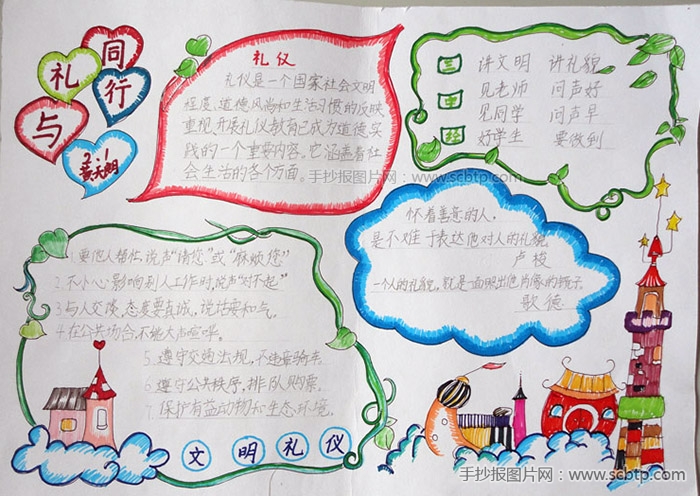 礼
与
同
行
2.1
黄天朗
礼仪
礼仪是一个国家社会文明
程度、道德风尚和生活习惯的反映
重视开展礼仪教育已成为道德实
践的一个重要内容。它涵盖着社
会生活的各个方面。
手抄报图片网：www.scbtp.com
三字经
讲文明 讲礼貌
见老师 问声好
见同学 问声早
好学生 要做到
怀着善意的人，
是不难于表达他对人的礼貌
卢梭
一个人的礼貌，就是一面照出他肖像的镜子
歌德
1.要他人帮忙，说声“请您”或“麻烦您”
2.不小心影响别人工作时，说声“对不起”
3.与人交谈，态度要真诚，说话要和气。
4.在公共场合，不能大声喧哗。
5.遵守交通法规，不违章骑车
6.遵守公共秩序，排队购票。
7.保护有益动物和生态环境。
文明礼仪
手抄报图片网：www.scbtp.com